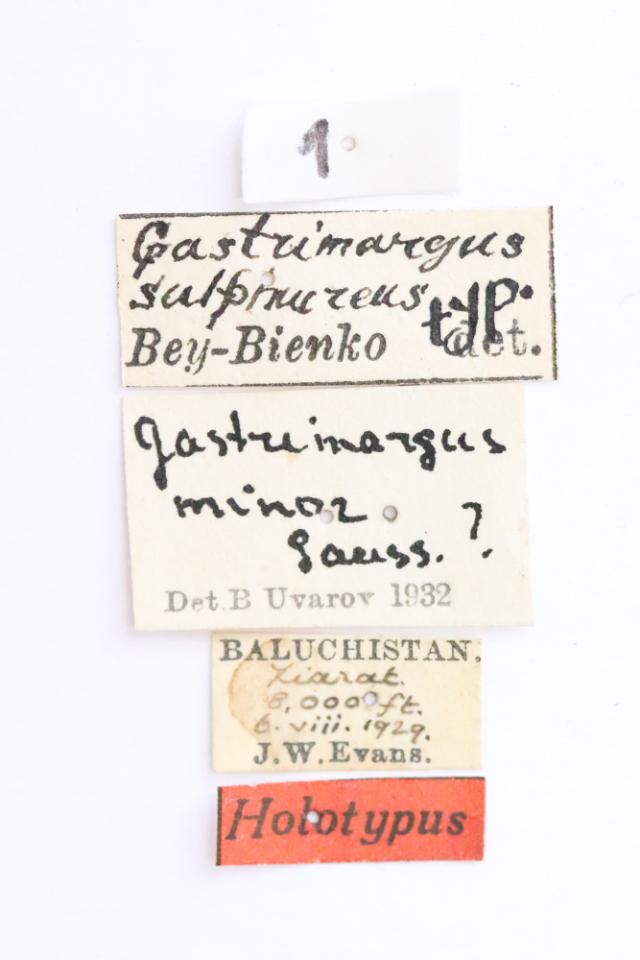 1
Gastrimargus
sulphureus typ.
Bey-Bienko det.
Gastrimargus
minor
Sauss. ?
Det. B Uvarov 1932
BALUCHISTAN.
Ziarat.
8,000 ft.
6. viii. 1929.
J.W. Evans.
Holotypus